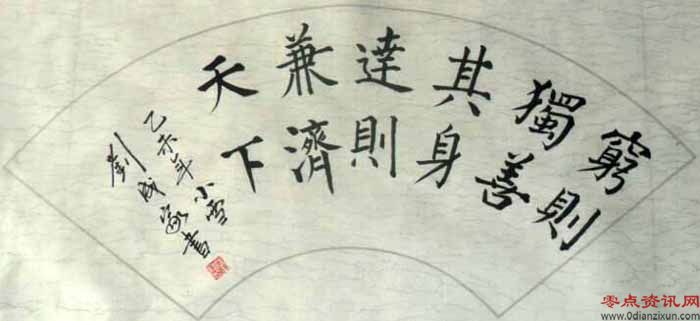 窮則
獨善
其身
達則
兼濟
天下
乙未年小雪
劉成家書
零点资讯网
www.0dianzixun.com